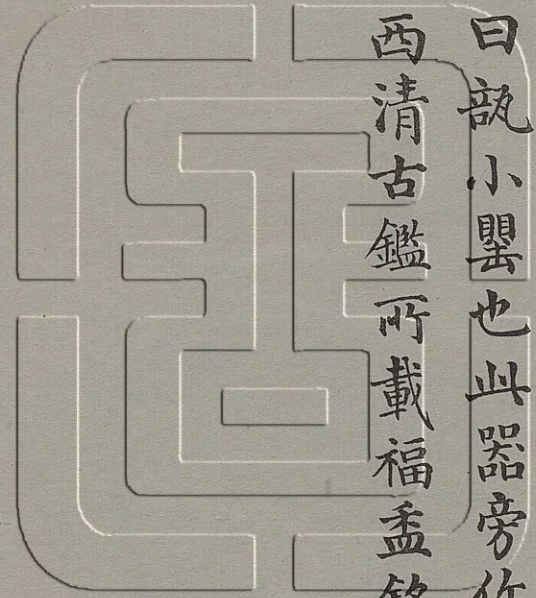 曰瓿小罌也此器旁作
西清古鑑所載福盉銘